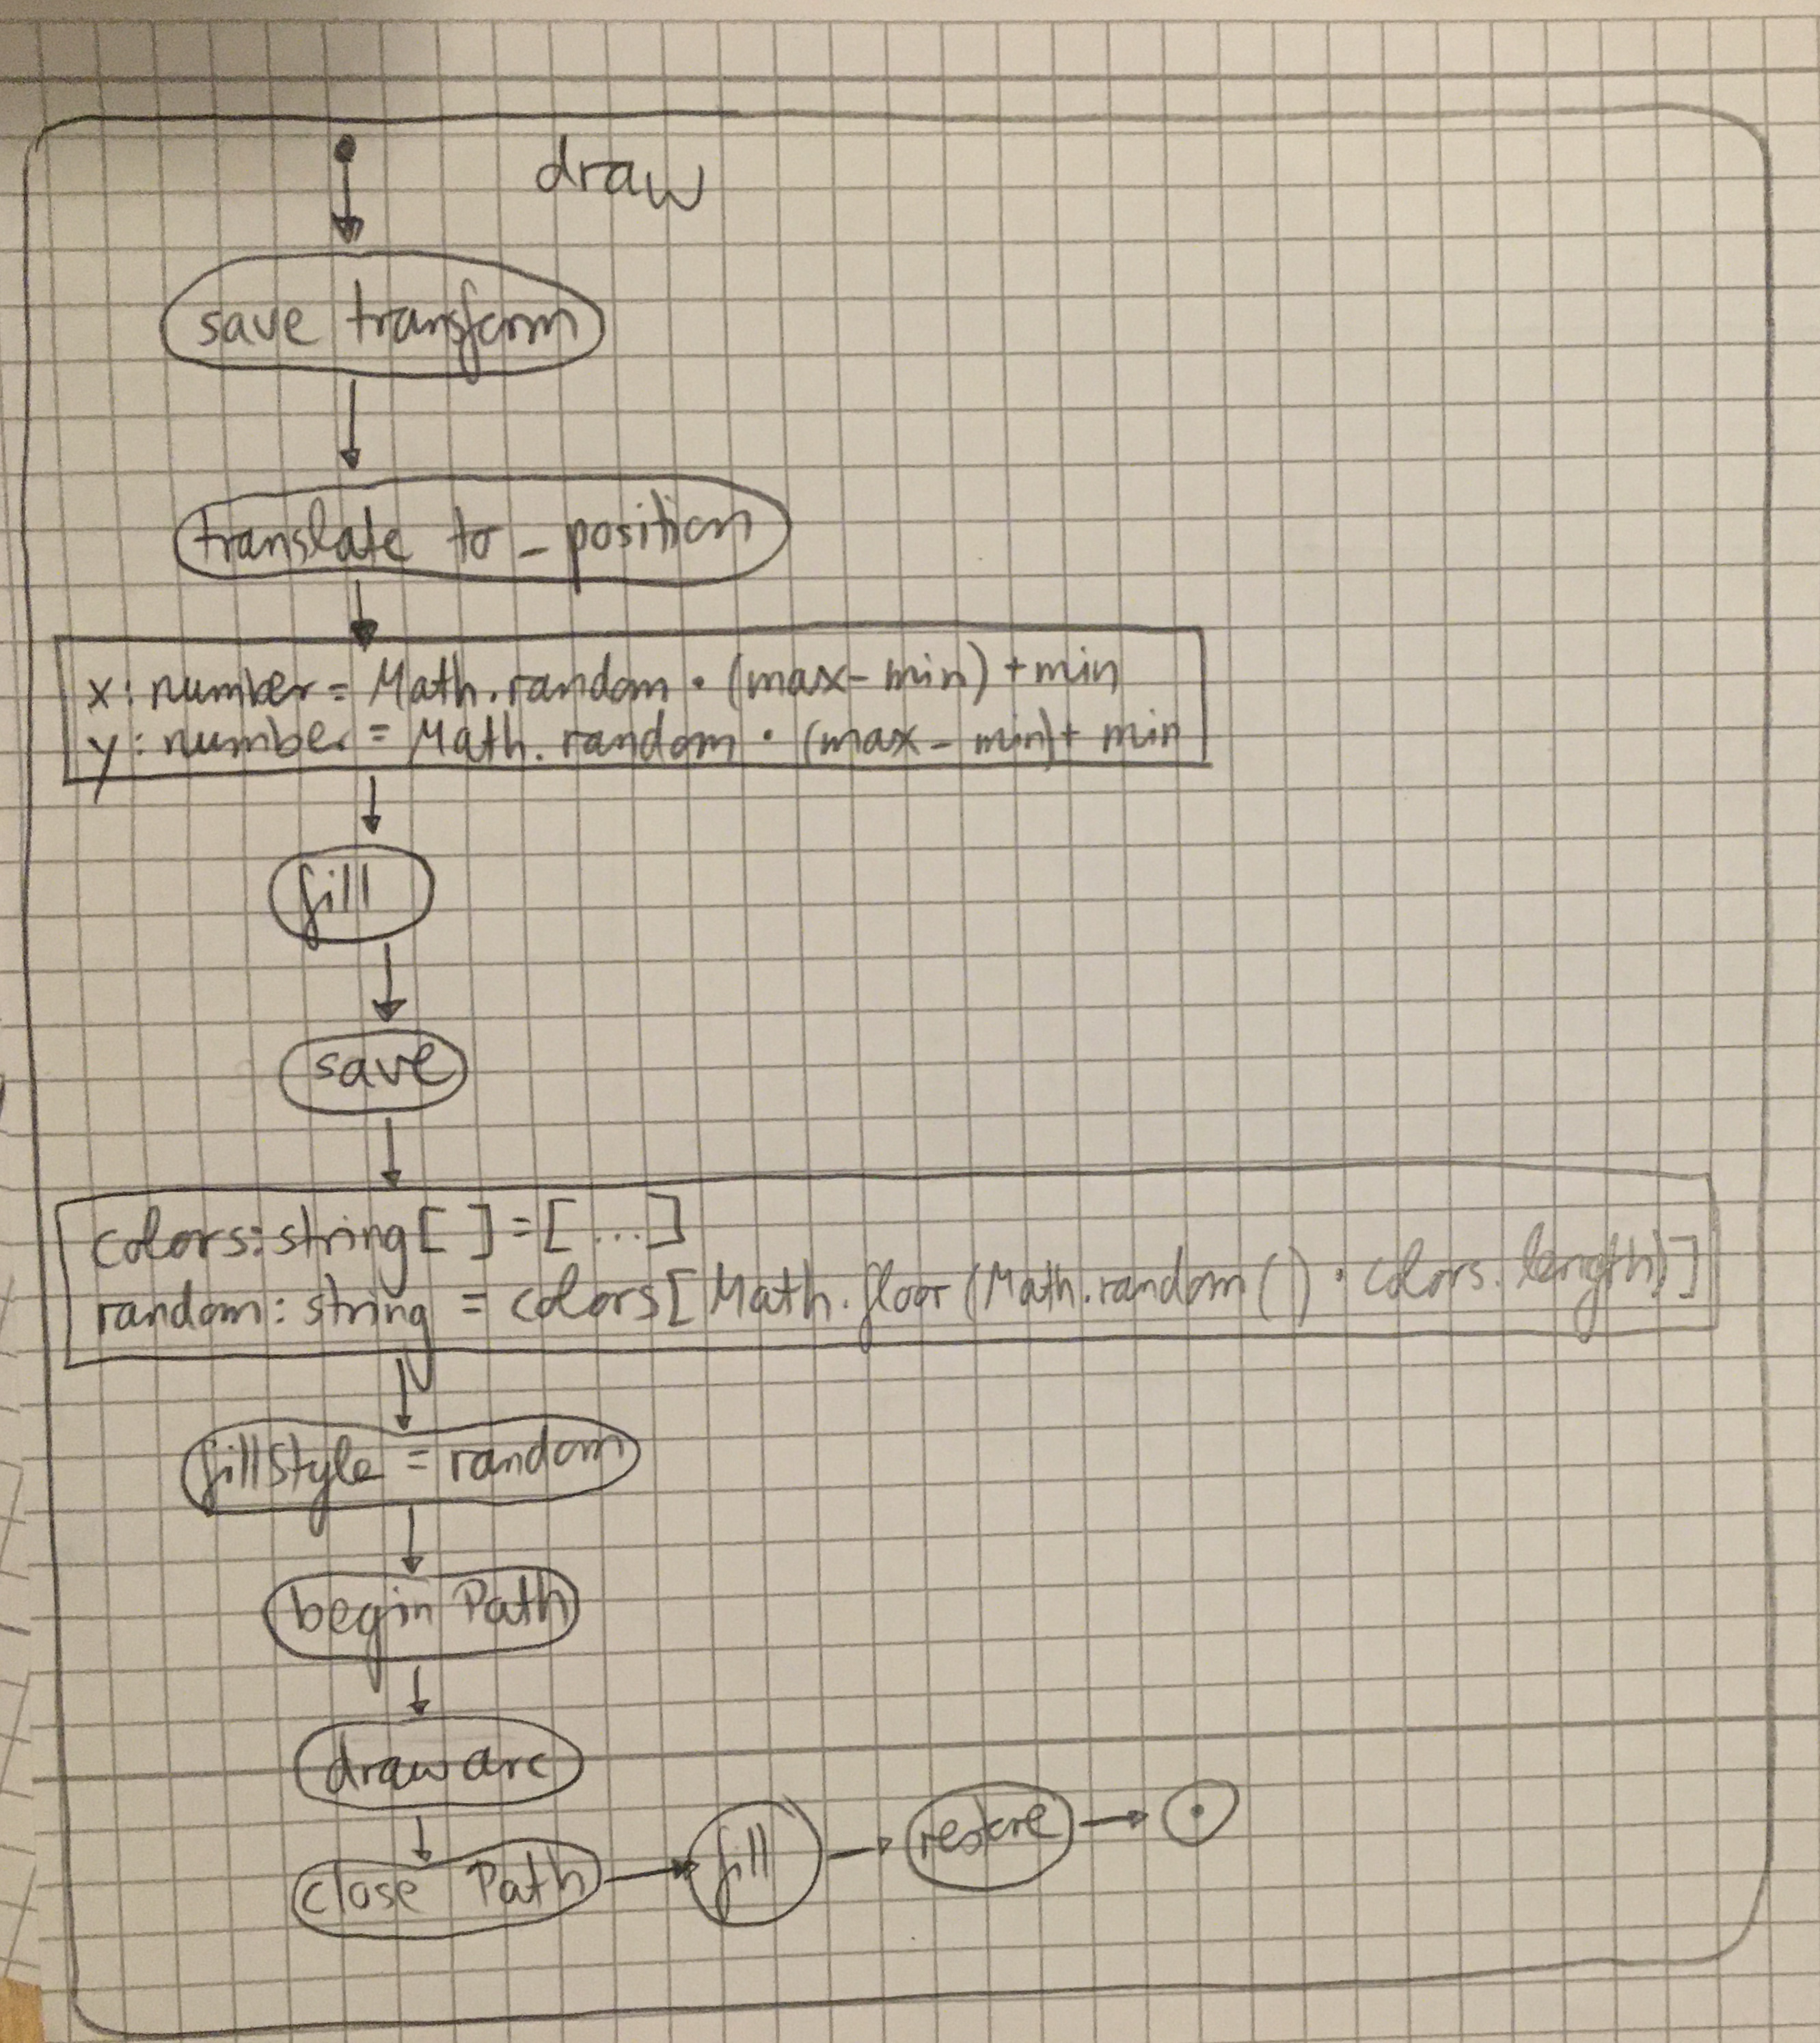 draw
save transform
translate to _position
x: number = Math.random · (max - min) + min
y: number = Math.random · (max - min) + min
fill
save
colors: string[ ] = [...]
random: string = colors[Math.floor(Math.random() · colors.length)]
fillStyle = random
begin Path
draw arc
close Path
fill
restore